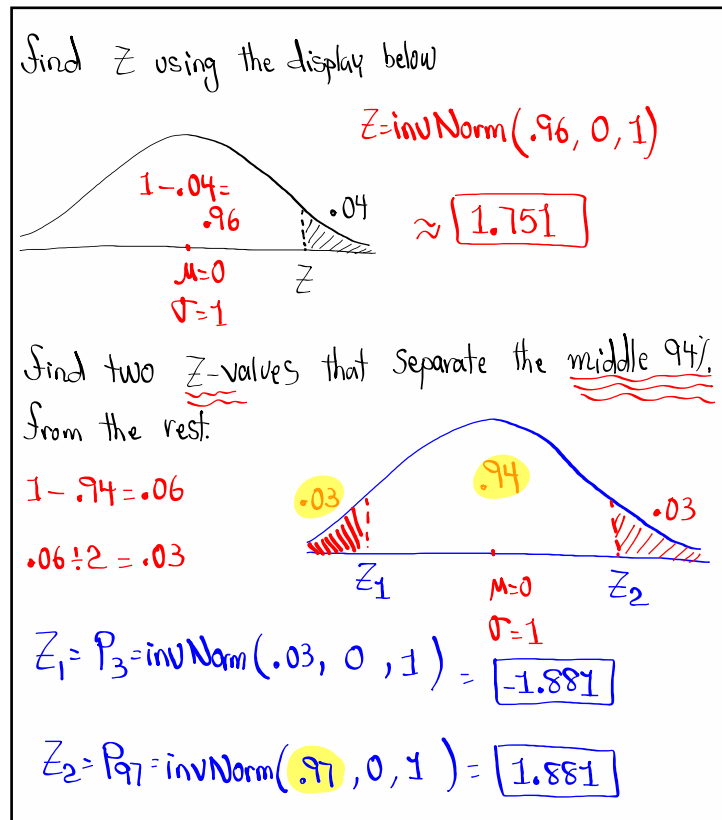 find Z using the display below
Z=invNorm(.96, 0, 1)
1-.04=
.96
.04
≈ 1.751
μ=0
Z
σ=1
find two Z-values that separate the middle 94%.
from the rest.
1-.94=.06
.03
.94
.03
.06÷2=.03
Z₁
μ=0
Z₂
σ=1
Z₁=P₃=invNorm(.03, 0, 1) = -1.881
Z₂=P₉₇=invNorm(.97, 0, 1) = 1.881